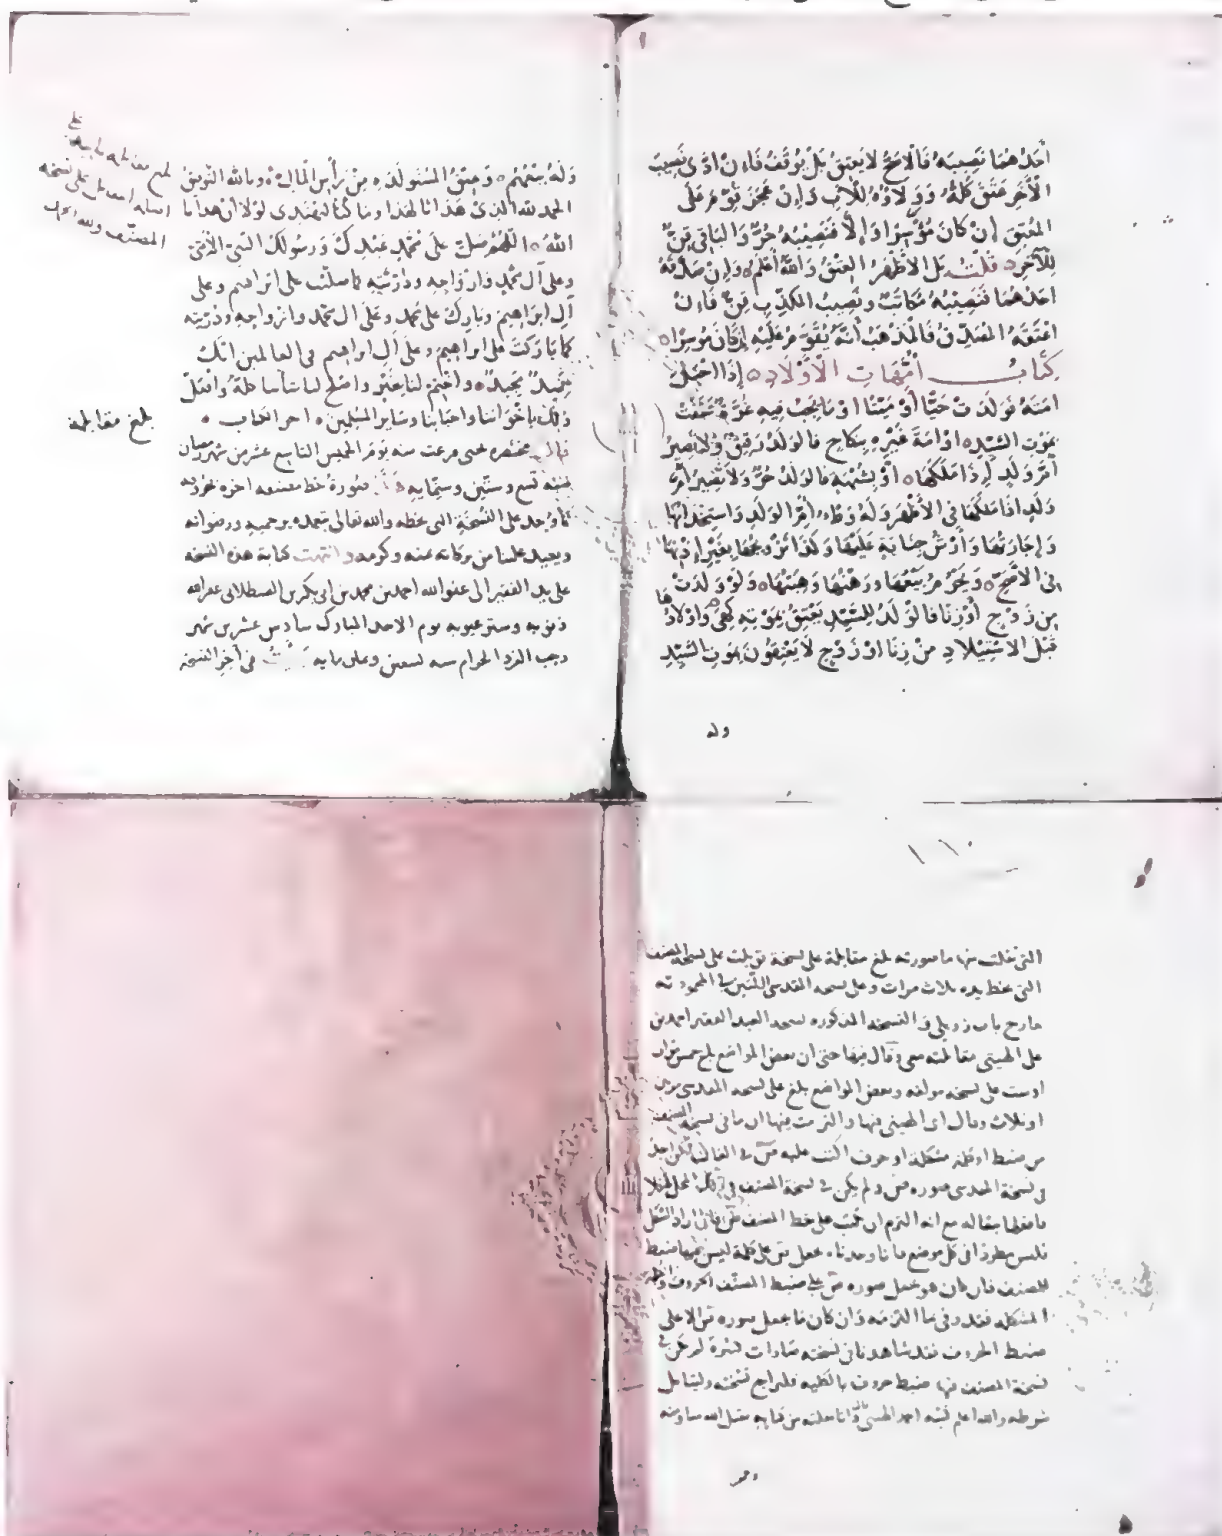 أحدهما نصيبه فالأصح لا يعتق بل يوقف فإن أدى نصيب
الآخر عتق كله وولاؤه للأب وإن عجز قوم على
المعتق إن كان موسرا وإلا فنصيبه حر والباقي قن
للآخر قلت بل الأظهر العتق والله أعلم وإن صدقه
أحدهما فنصيبه مكاتب ونصيب المكذب قن فإن
أعتقه المصدق فالمذهب أنه يقوم عليه إن كان موسرا
كتاب أمهات الأولاد إذا أحبل
أمته فولدت حيا أو ميتا أو ما يجب فيه غرة عتقت
بموت السيد أو أمة غيره بنكاح فالولد رقيق ولا تصير
أم ولد إذا ملكها أو بشبهة فالولد حر ولا تصير أم
ولد إذا ملكها في الأظهر وله وطء أم الولد واستخدامها
وإجارتها وأرش جناية عليها وكذا تزويجها بغير إذنها
في الأصح ويحرم بيعها ورهنها وهبتها ولو ولدت
من زوج أو زنا فالولد للسيد يعتق بموته كهي وأولادها
قبل الاستيلاد من زنا أو زوج لا يعتقون بموت السيد
وله
وله بيعهم وعتق المستولدة من رأس المال وبالله التوفيق
الحمد لله الذي هدانا لهذا وما كنا لنهتدي لولا أن هدانا
الله اللهم صل على محمد عبدك ورسولك النبي الأمي
وعلى آل محمد وأزواجه وذريته كما صليت على إبراهيم وعلى
آل إبراهيم وبارك على محمد وعلى آل محمد وأزواجه وذريته
كما باركت على إبراهيم وعلى آل إبراهيم في العالمين إنك
حميد مجيد واختم لنا بخير وأصلح لنا شأننا كله وافعل
ذلك بإخواننا وأحبابنا وسائر المسلمين آخر الكتاب
قال مختصره يحيى فرغت منه يوم الخميس التاسع عشر من شهر رمضان
سنة تسع وستين وستمايه هذا صورة خط مصنفه آخره
كما وجد على النسخة التي بخطه والله تعالى يتغمده برحمته ورضوانه
ويعيد علينا من بركاته بمنه وكرمه وانتهت كتابة هذه النسخه
على يد الفقير الى عفو الله احمد بن محمد بن ابي بكر بن القسطلاني غفر الله
ذنوبه وستر عيوبه يوم الاحد المبارك سادس عشرين شهر
رجب الفرد الحرام سنه تسعين وثمان مايه في آخر النسخة
بلغ مقابلة
المصنف ولله الحمد
التي نقلت منها ما صورته بلغ مقابلة على نسخة قوبلت على نسخة المصنف
التي بخط يده ثلاث مرات وعلى نسخه المقدسي اللتين في المحموديه
خارج باب زويلة والنسخه المذكوره نسخه العبد الفقير احمد بن
علي الهيتي مقابلته معي وقال فيها حتى ان بعض المواضع بلغ خمس مرار
او ست على نسخه مولفه وبعض المواضع بلغ على نسخه المقدسي مرتين
او ثلاث وقال اي الهيتي فيها والتزمت فيها ان ما في نسخة المصنف
من ضبط او كلمة مشكلة او حرف اكتب عليه ص في الغالب
في نسخة المقدسي صوره ص ولم يكن في نسخة المصنف
مع انه التزم ان يكتب على خط المصنف
فليس مطردا في كل موضع فانا وجدناه يجعل ص على كلمة ليس فيها ضبط
للمصنف فان كان هو يجعل صوره ص على ضبط المصنف الحروف
المشكله فقد وفى بما التزمه وان كان ما يجعل صوره ص الا على
ضبط الحروف فقد شاهدنا في نسخته صادات كثيرة لم يكن في
نسخة المصنف فيها ضبط حروف بالكليه فليراجع نسخته وليتامل
شرطه والله اعلم